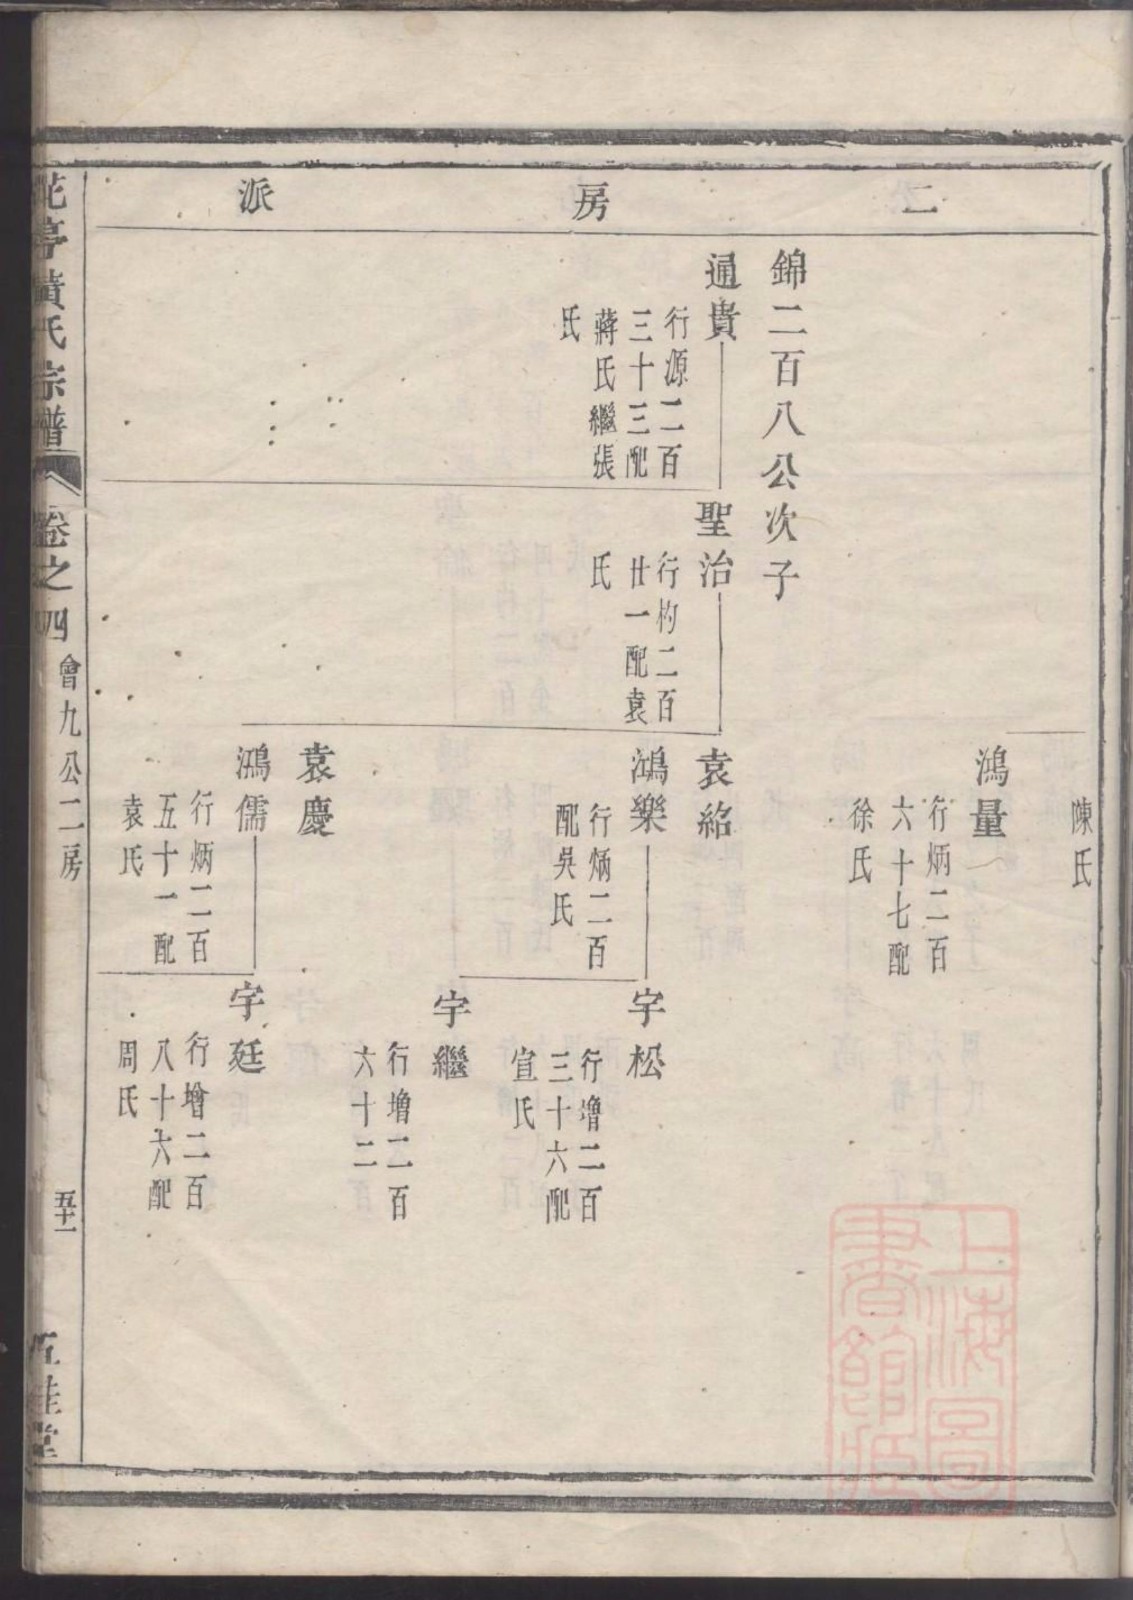 二房派
陳氏
鴻量
行炳二百
六十七配
徐氏
錦二百八公次子
通貴
行源二百
三十三配
蔣氏繼張
氏
聖治
行杓二百
廿一配袁
氏
袁紹
鴻樂
行炳二百
配吳氏
宇松
行增二百
三十六配
宣氏
宇繼
行增二百
六十二
袁慶
鴻儒
行炳二百
五十一配
袁氏
宇廷
行增二百
八十六配
周氏
花亭黃氏宗譜
卷之四
會九公二房
五十一
五桂堂
上海圖
書館藏